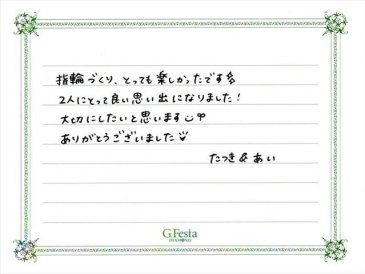 指輪づくり、とっても楽しかったです
2人にとって良い思い出になりました!
大切にしたいと思います
ありがとうございました
たつき & あい
G.Festa
DIAMOND